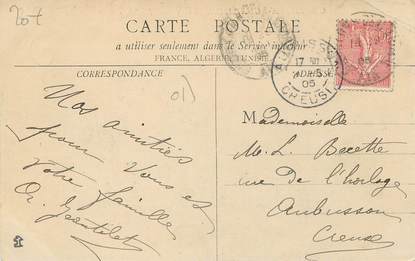 20t
CARTE POSTALE
a utiliser seulement dans le Service intérieur
FRANCE, ALGERIE, TUNISIE
CORRESPONDANCE
ADRESSE
AUBUSSON
17
05
CREUSE
Nos amitiés
pour Vous et
votre famille
Mademoiselle
M. L.
rue De l'horloge
Aubusson
Creuse